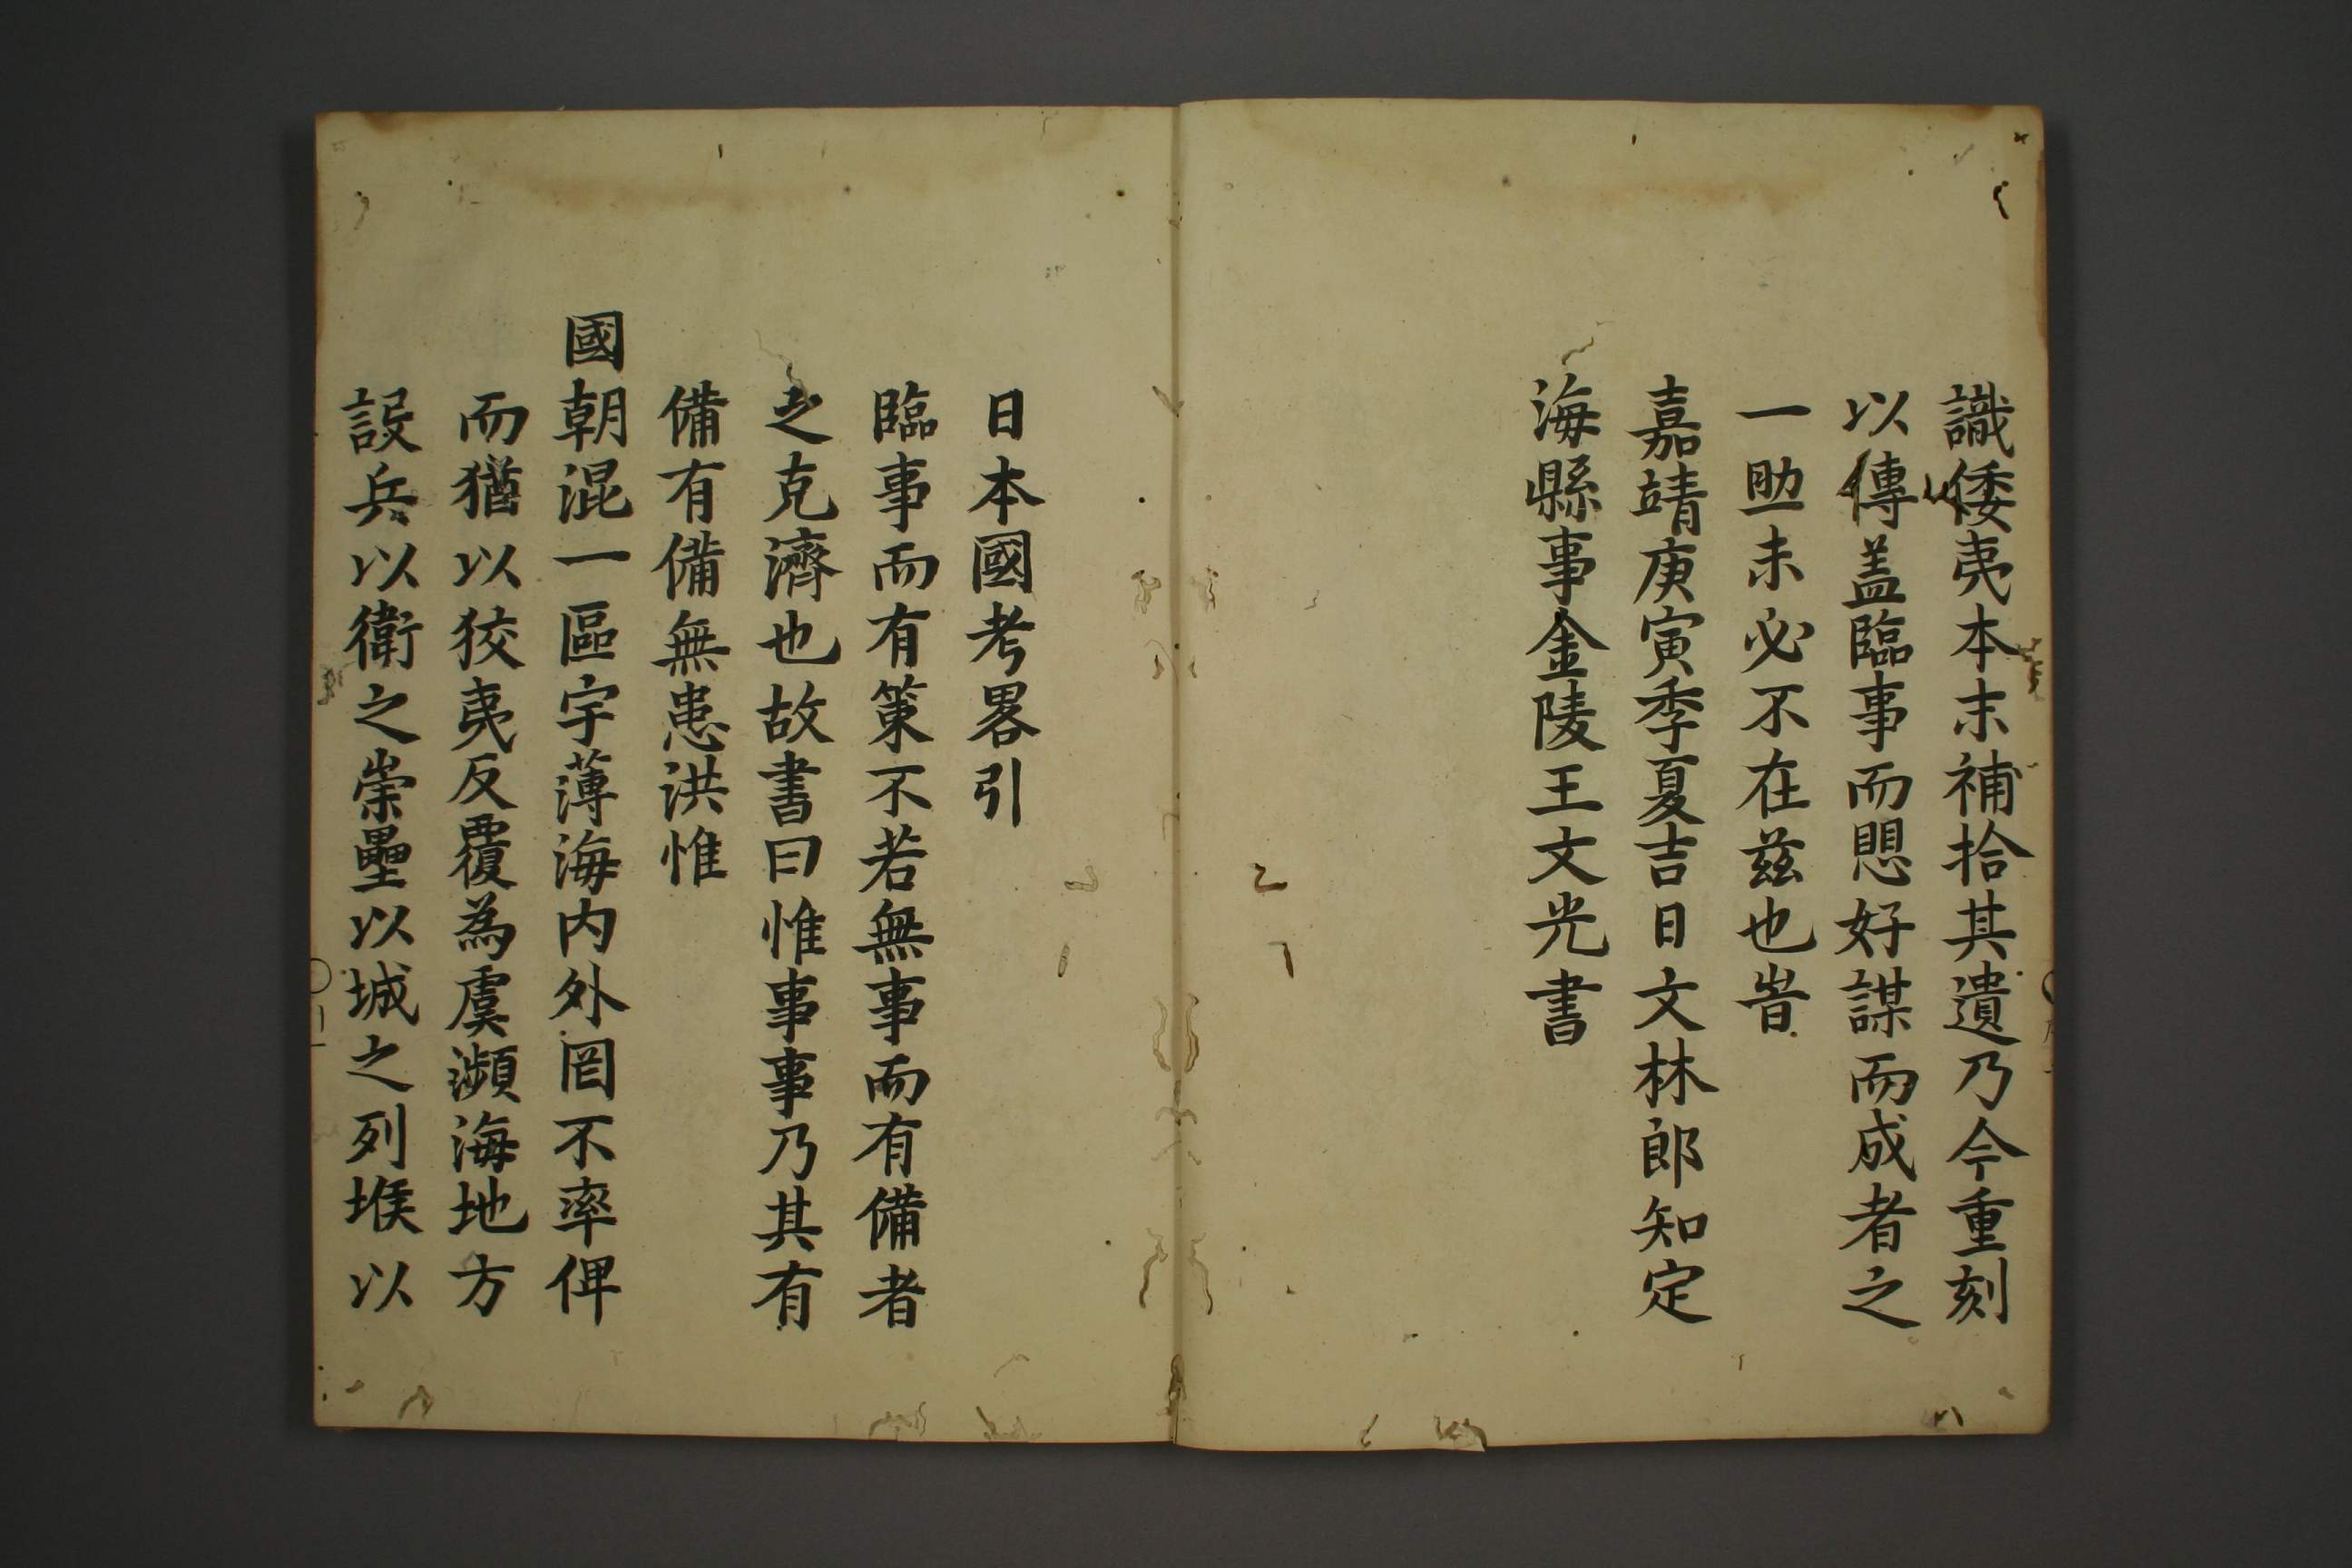 識倭夷本末補拾其遺乃令重刻
以傳盖臨事而思好謀而成者之
一助未必不在兹也旹
嘉靖庚寅季夏吉日文林郎知定
海縣事金陵王文光書
日本國考畧引
臨事而有策不若無事而有備者
之克濟也故書曰惟事事乃其有
備有備無患洪惟
國朝混一區宇薄海内外罔不率俾
而猶以狡夷反覆為虞瀕海地方
設兵以衛之崇壘以城之列堠以